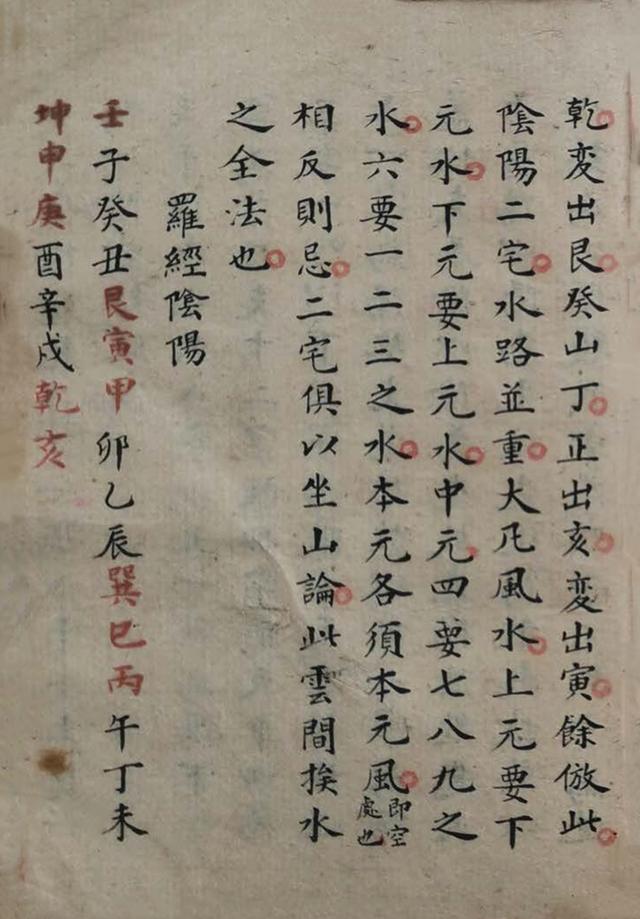 乾变出艮癸山丁正出亥变出寅餘倣此
陰陽二宅水路並重大凡風水上元要下
元水下元要上元水中元四要七八九之
水六要一二三之水本元各須本元風即空處也
相反則忌二宅俱以坐山論此雲間挨水
之全法也
羅經陰陽
壬子癸丑艮寅甲卯乙辰巽巳丙午丁未
坤申庚酉辛戌乾亥